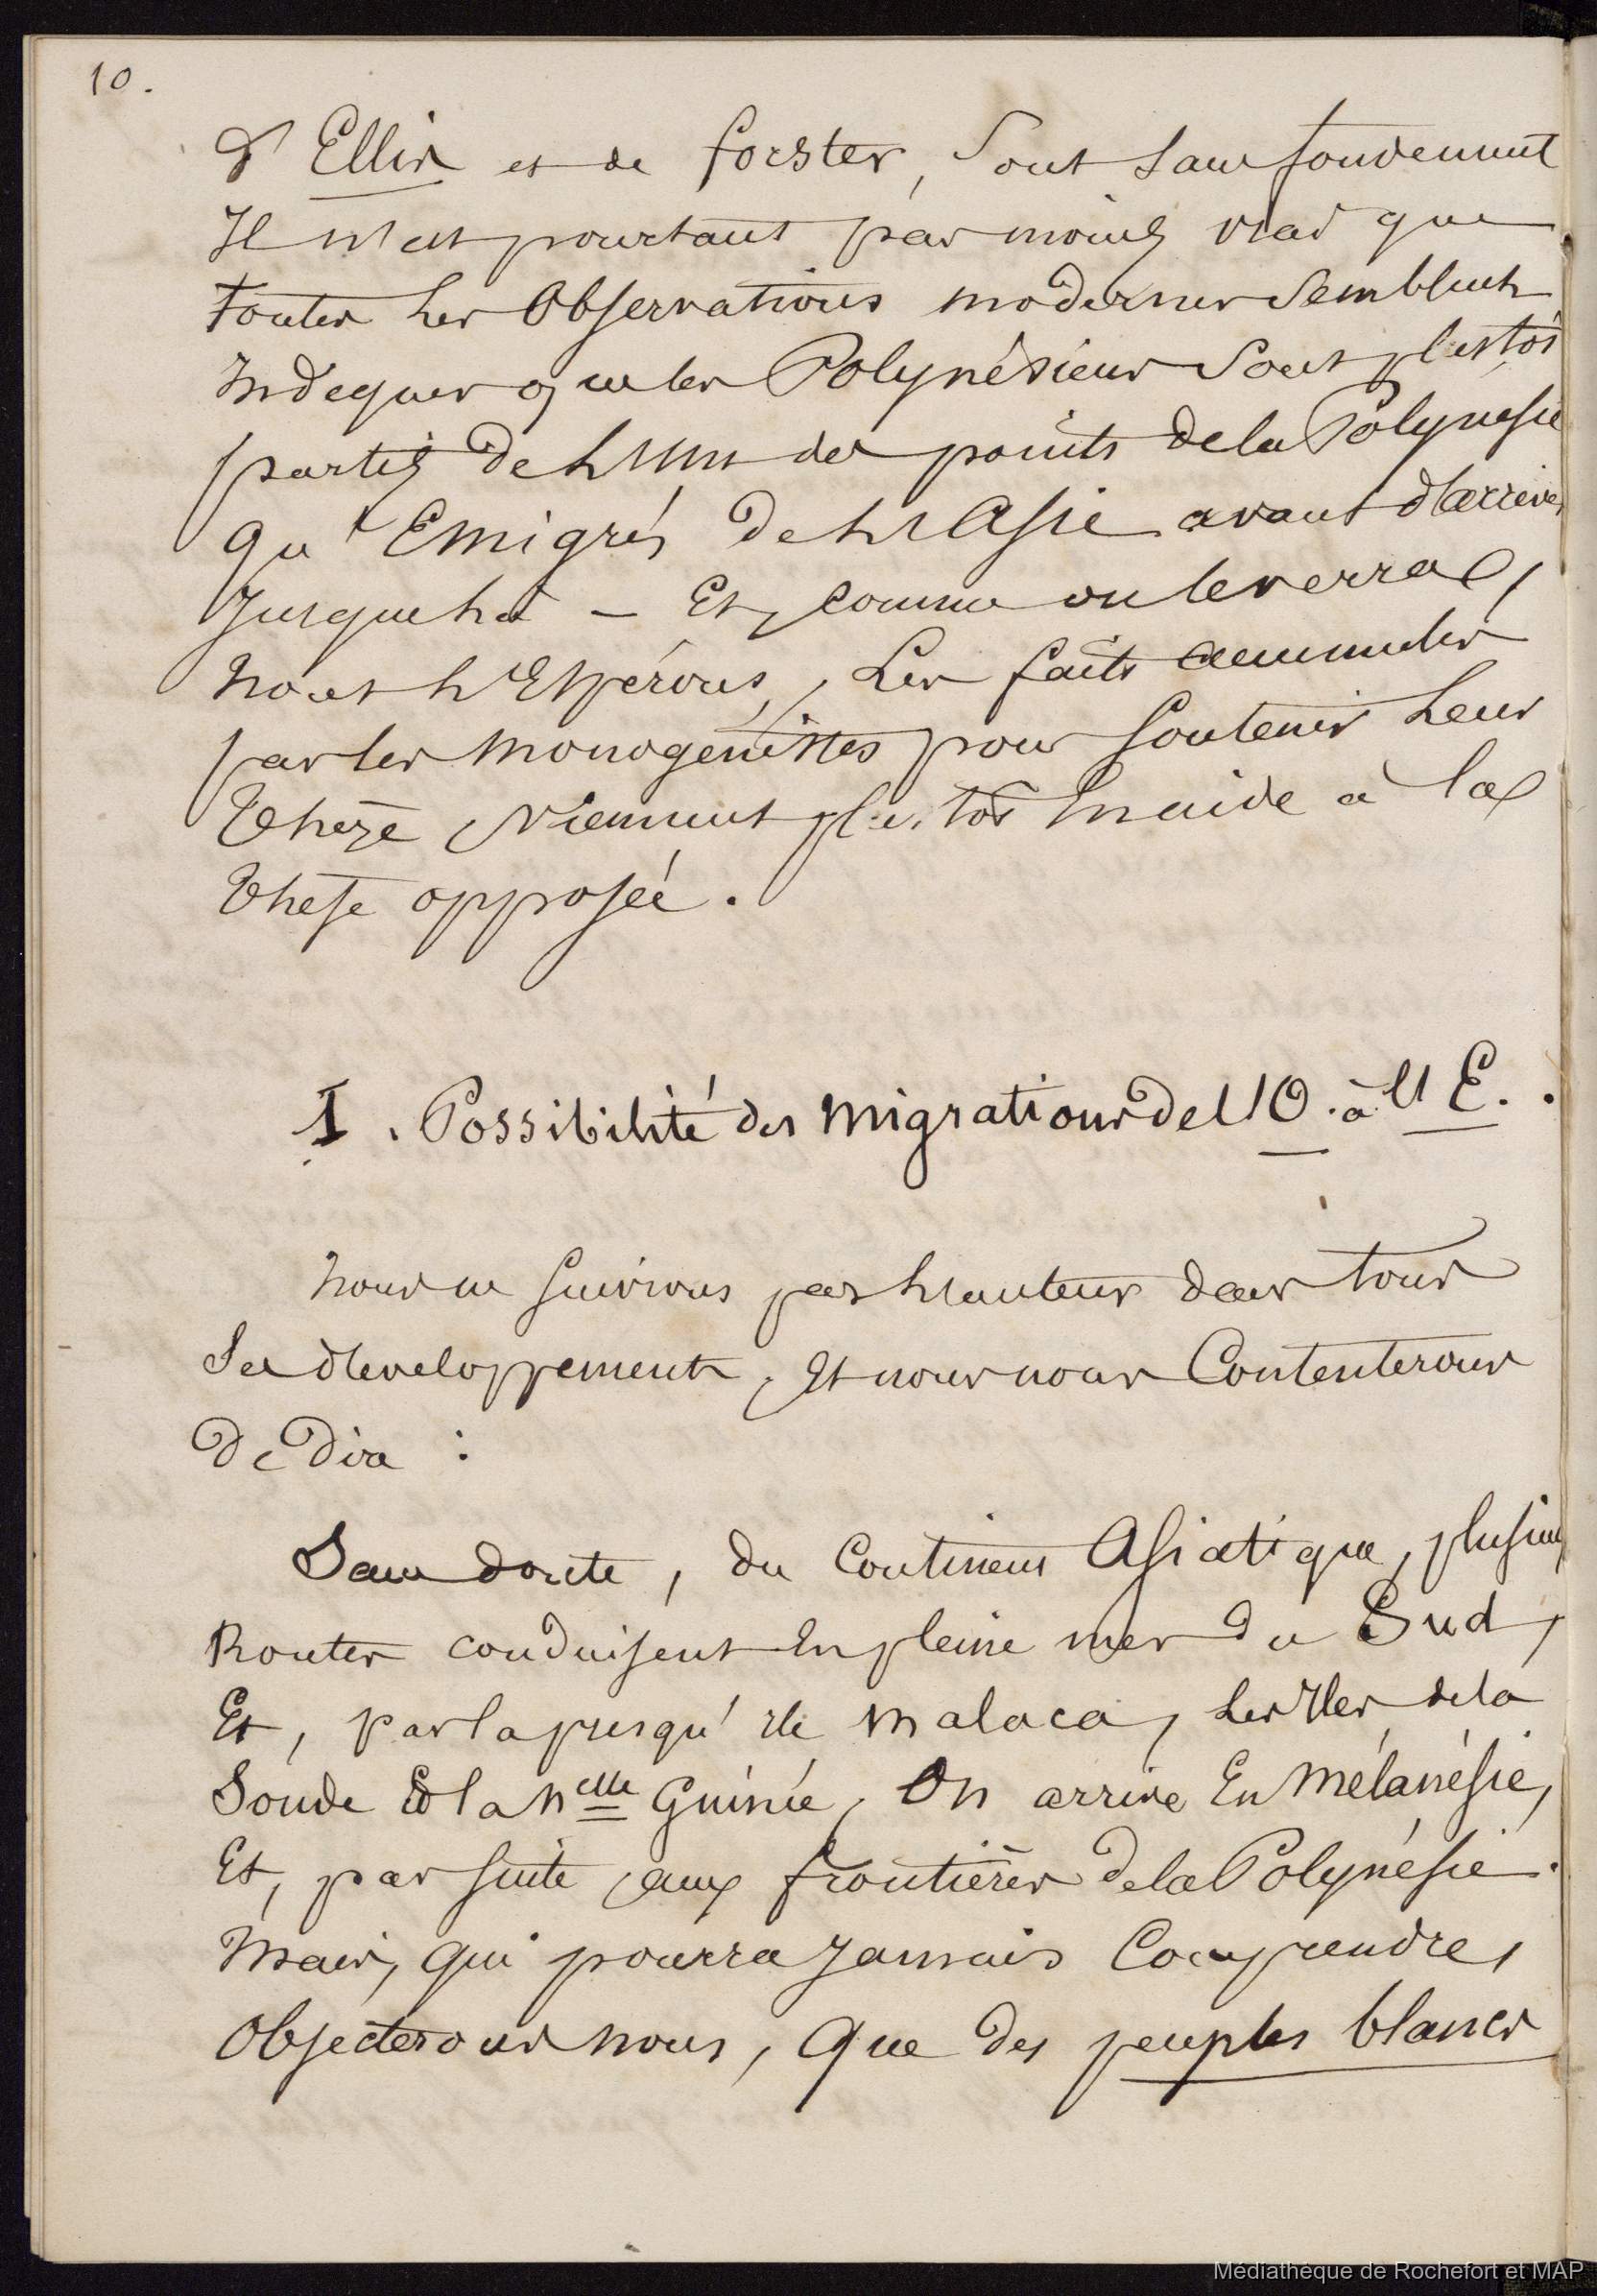 10.
d'Ellis et de forster, sont sans fondement
Il n'est pourtant pas moins vrai que
toutes les observations modernes semblent
Indiquer que les Polynésiens sont plustôt
partis de l'un des points de la Polynesie
qu'Emigrés de l'Asie avant d'arriver
Jusque là — Et, comme on le verra,
nous l'Espérons, Les faits accumulés
par les monogénistes pour soutenir leur
Thèze, viennent plutôt En aide à la
These opposée.
I. Possibilité des migrations de l'O. à l'E.
nous ne suivrons pas l'auteur dans tous
ses developpements, et nous nous Contenterons
De Dire :
Sans doute, du Continent Asiatique, plusieurs
Routes conduisent En pleine mer du Sud,
Et, par la presqu'ile malaca, les Iles de la
Sonde Et la Nelle Guinée, On arrive En Mélanésie,
Et, par suite, aux frontières de la Polynésie.
Mais, qui pourra Jamais Comprendre,
Objecterons nous, que des peuples blancs
Médiathèque de Rochefort et MAP